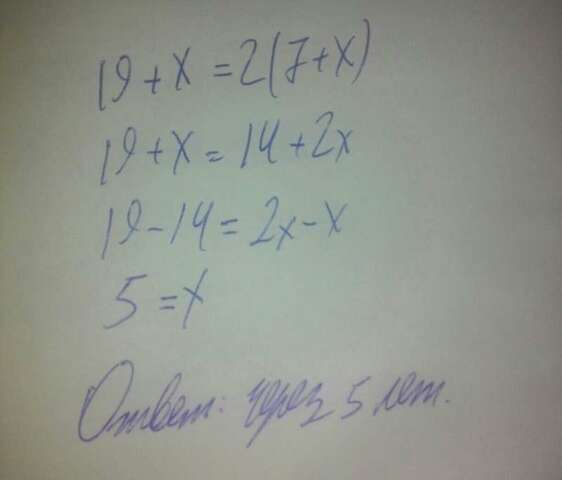 19+x=2(7+x)
19+x=14+2x
19-14=2x-x
5=x
Ответ: через 5 лет.